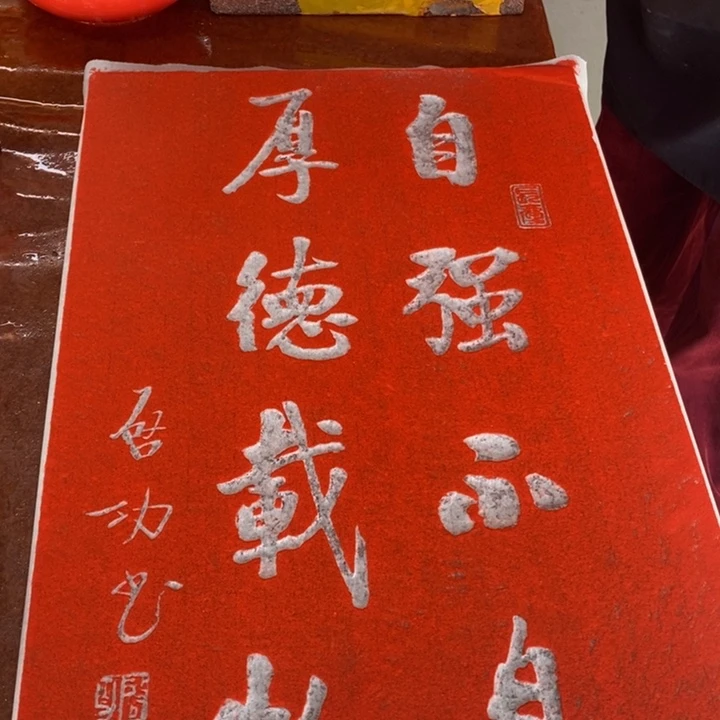 自强不
厚德載
启功书